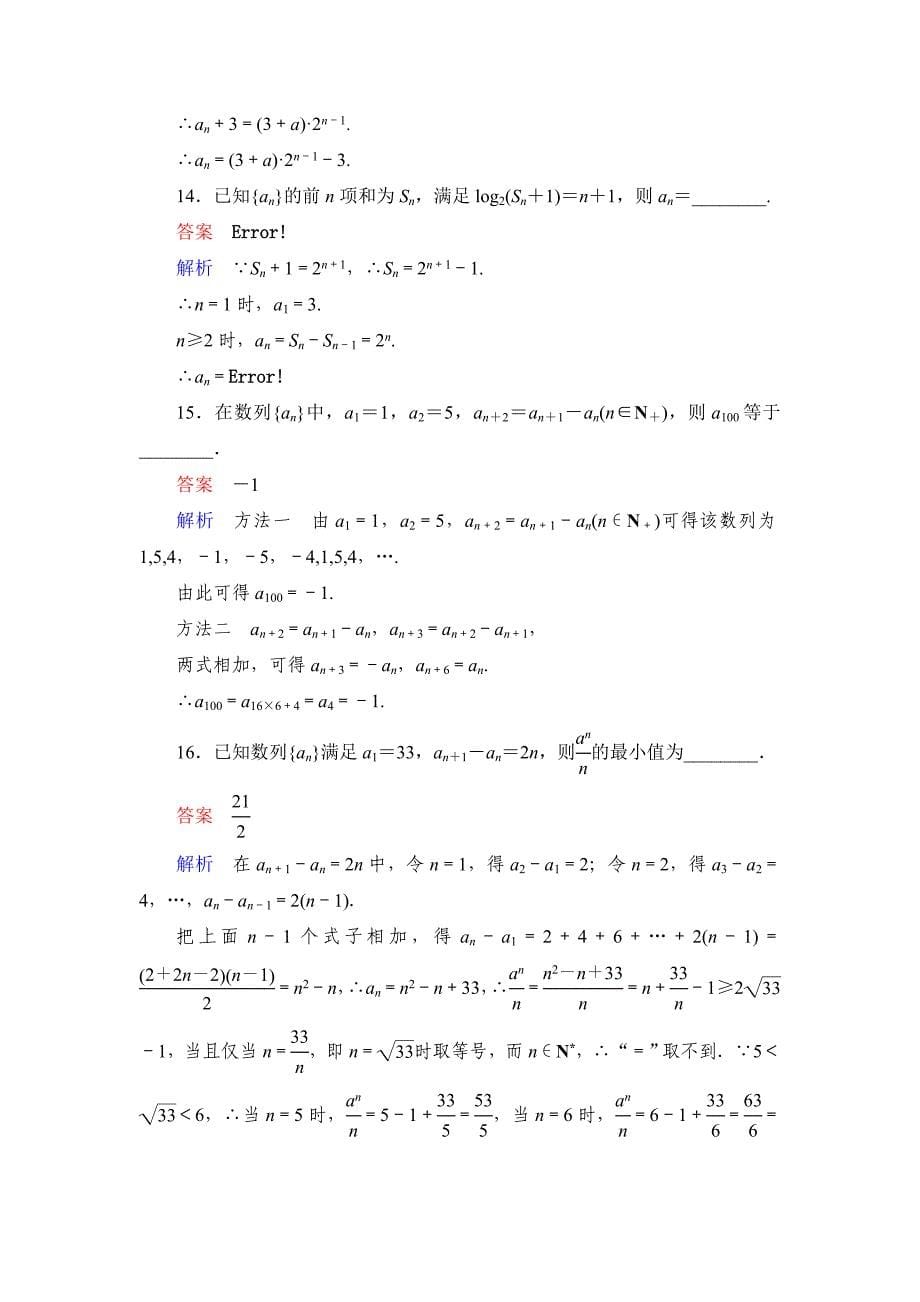 ∴aₙ+3=(3+a)·2ⁿ⁻¹.
∴aₙ=(3+a)·2ⁿ⁻¹-3.
14．已知{aₙ}的前n项和为Sₙ，满足log₂(Sₙ+1)=n+1，则aₙ=________.
答案　Error!
解析　∵Sₙ+1=2ⁿ⁺¹，∴Sₙ=2ⁿ⁺¹-1.
∴n=1时，a₁=3.
n≥2时，aₙ=Sₙ-Sₙ₋₁=2ⁿ.
∴aₙ=Error!
15．在数列{aₙ}中，a₁=1，a₂=5，aₙ₊₂=aₙ₊₁-aₙ(n∈N₊)，则a₁₀₀等于
________．
答案　-1
解析　方法一　由a₁=1，a₂=5，aₙ₊₂=aₙ₊₁-aₙ(n∈N₊)可得该数列为
1,5,4，-1，-5，-4,1,5,4，….
由此可得a₁₀₀=-1.
方法二　aₙ₊₂=aₙ₊₁-aₙ，aₙ₊₃=aₙ₊₂-aₙ₊₁，
两式相加，可得aₙ₊₃=-aₙ，aₙ₊₆=aₙ.
∴a₁₀₀=a₁₆ₓ₆₊₄=a₄=-1.
16．已知数列{aₙ}满足a₁=33，aₙ₊₁-aₙ=2n，则aⁿ/n的最小值为________．
答案　21/2
解析　在aₙ₊₁-aₙ=2n中，令n=1，得a₂-a₁=2；令n=2，得a₃-a₂=
4，…，aₙ-aₙ₋₁=2(n-1)．
把上面n-1个式子相加，得aₙ-a₁=2+4+6+…+2(n-1)=
(2+2n-2)(n-1)/2=n²-n，∴aₙ=n²-n+33，∴aⁿ/n=(n²-n+33)/n=n+33/n-1≥2√33
-1，当且仅当n=33/n，即n=√33时取等号，而n∈N*，∴“=”取不到．∵5<
√33<6，∴当n=5时，aⁿ/n=5-1+33/5=53/5，当n=6时，aⁿ/n=6-1+33/6=63/6=